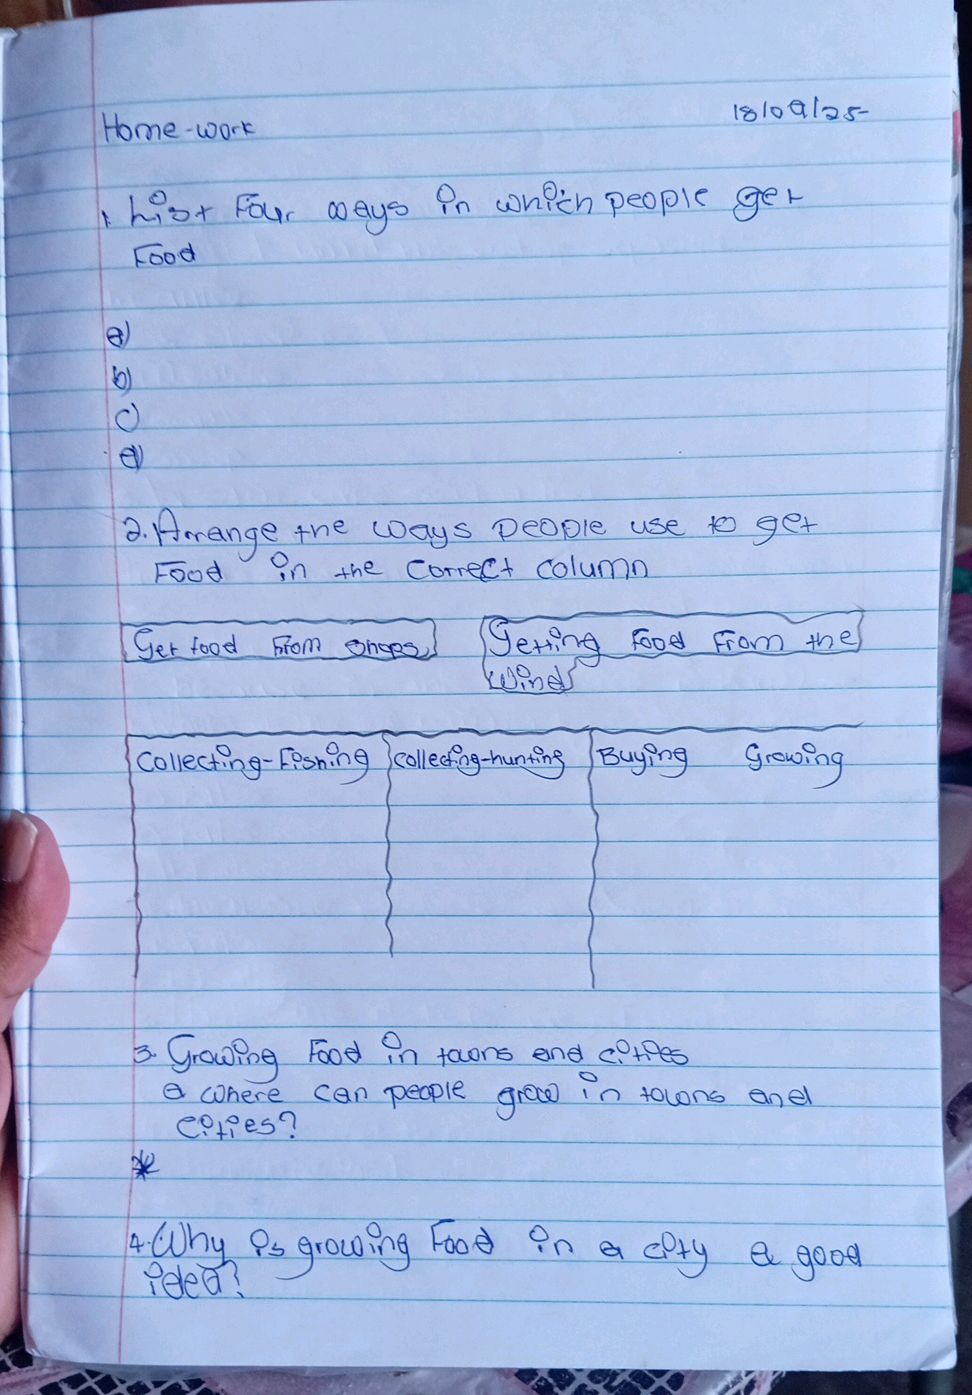 Home-work 18/09/25
1. List Four ways in which people get
Food
a)
b)
c)
d)
2. Arrange the ways people use to get
Food in the correct column
Get food From shops Getting food From the
Wind
Collecting-Fishing Collecting-hunting Buying Growing
3. Growing Food in towns and cities
a where can people grow in towns and
cities?
*
4. Why is growing Food in a city a good
idea?